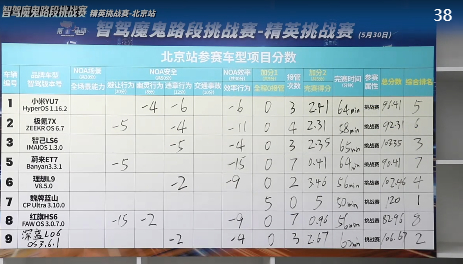 智驾魔鬼路段挑战赛 精英挑战赛-北京站
38
智驾魔鬼路段挑战赛-精英挑战赛 (5月30日)
北京站参赛车型项目分数
车辆编号 品牌车型 智驾版本号 NDA场景 NDA安全 NDA效率 加分1 接管次数 加分2 完赛时间 参赛属性 总分数 综合排名
全场景能力 避让行为 幽灵行为 违章行为 交通事故 效率行为 全程0接管
1 小米YU7 HyperOS 1.16.2 -4 -6 -6 0 3 2.41 64min 挑战赛 96.41 5
2 极氪7X ZEEKR OS 6.7 -5 -4 -11 0 4 2.31 58min 挑战赛 92.31 6
3 智己LS6 IMAIOS 1.3.0 -5 -4 0 3 2.35 65min 挑战赛 103.35 3
5 蔚来ET7 Banyan3.3.1 -5 -15 0 7 0.41 挑战赛 90.41 7
6 理想L9 V8.5.0 -2 -9 0 2 3.46 56min 挑战赛 102.46 4
7 魏牌蓝山 CP Ultra 3.10.0 5 0 5 50min 挑战赛 120 1
8 红旗HS6 FAW OS 3.0.7.0 -15 -2 -9 0 7 0.96 挑战赛 82.96 8
9 深蓝L06 OS3.6.1 -2 -4 0 3 2.67 挑战赛 106.67 2